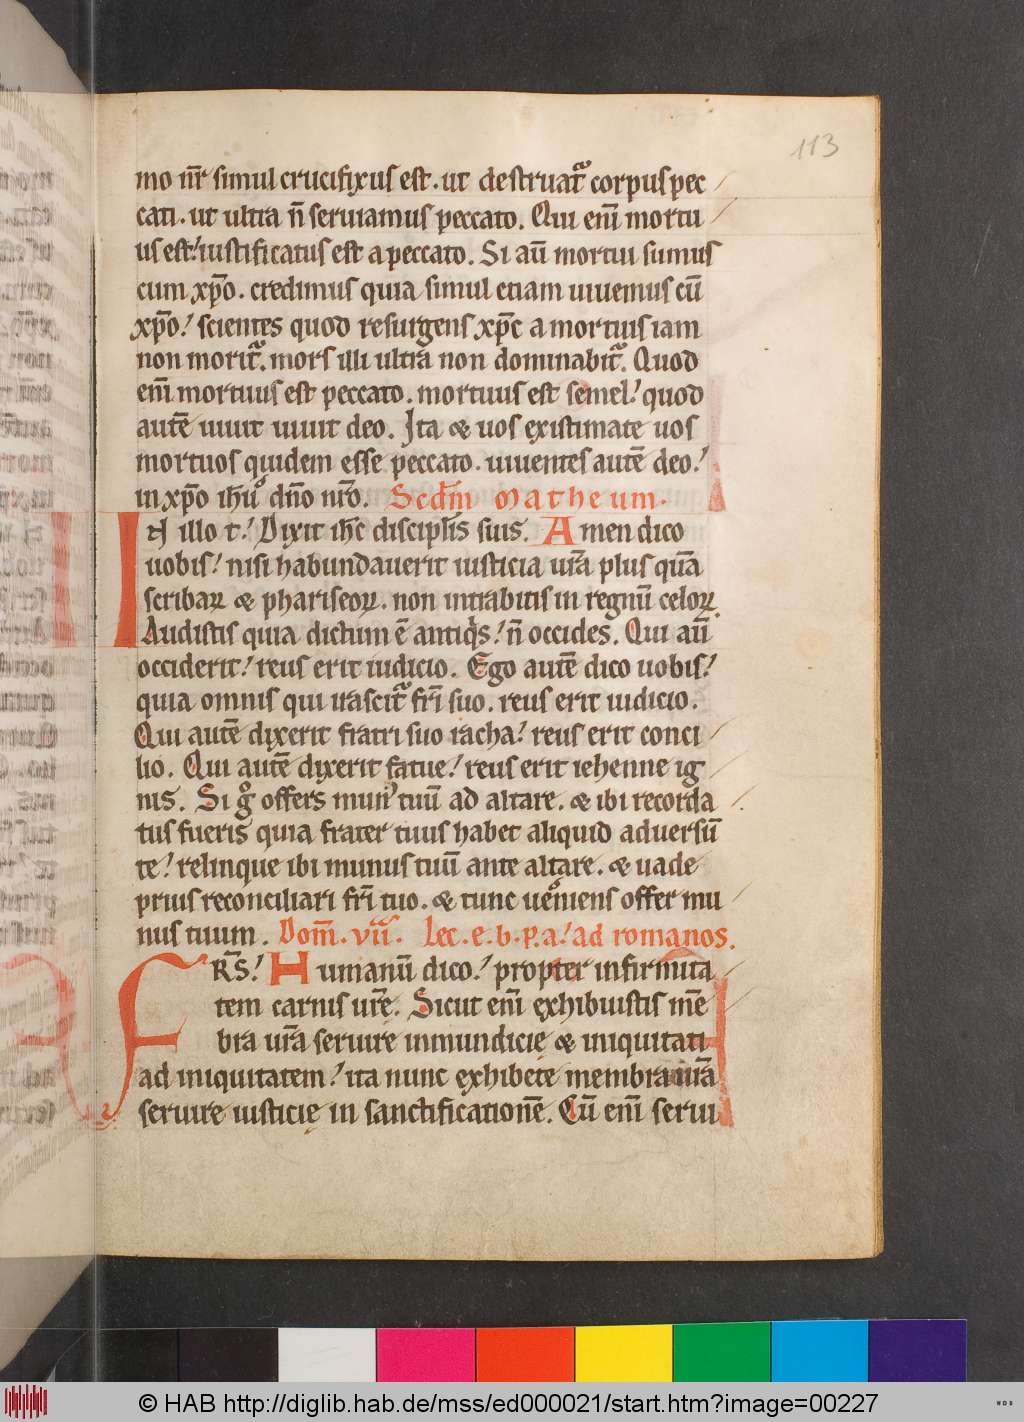 113
mo nr̄ simul crucifixus est. ut destruat᷑ corpus pec
cati. ut ultra n̄ seruiamus peccato. Qui enī mortu
us est! iustificatus est a peccato. Si aū mortui sumus
cum xp̄o. credimus quia simul etiam uiuemus cū
xp̄o! scientes quod resurgens xp̄c a mortuis iam
non morit᷑. mors illi ultra non dominabit᷑. Quod
enī mortuus est peccato. mortuus est semel! quod
autē uiuit uiuit deo. Ita & uos existimate uos
mortuos quidem esse peccato. uiuentes autē deo!
in xp̄o ih̄u dn̄o nr̄o. Scd̄m Matheum.
In illo t! Dixit ih̄c discipl̄is suis. Amen dico
uobis! nisi habundauerit iusticia ur̄a plus quā
scribaꝝ & phariseoꝝ. non intrabitis in regnū celoꝝ.
Audistis quia dictum ē antiqͥs! n̄ occides. Qui aū
occiderit! reus erit iudicio. Ego autē dico uobis!
quia omnis qui irascit᷑ fr̄i suo. reus erit iudicio.
Qui autē dixerit fratri suo racha! reus erit conci
lio. Qui autē dixerit fatue! reus erit iehenne ig
nis. Si gͦ offers mun᾽ tuū ad altare. & ibi recorda
tus fueris quia frater tuus habet aliquid aduersū
te! relinque ibi munus tuū ante altare. & uade
prius reconciliari fr̄i tuo. & tunc ueniens offer mu
nus tuum. Dom̄. vii. Lec. e. b. p. a! ad romanos.
FRS̄! Humanū dico! propter infirmita
tem carnis ur̄e. Sicut enī exhibuistis mē
bra ur̄a seruire inmundicię & iniquitati
ad iniquitatem! ita nunc exhibete membra ur̄a
seruire iusticię in sanctificationē. Cū enī serui
© HAB http://diglib.hab.de/mss/ed000021/start.htm?image=00227